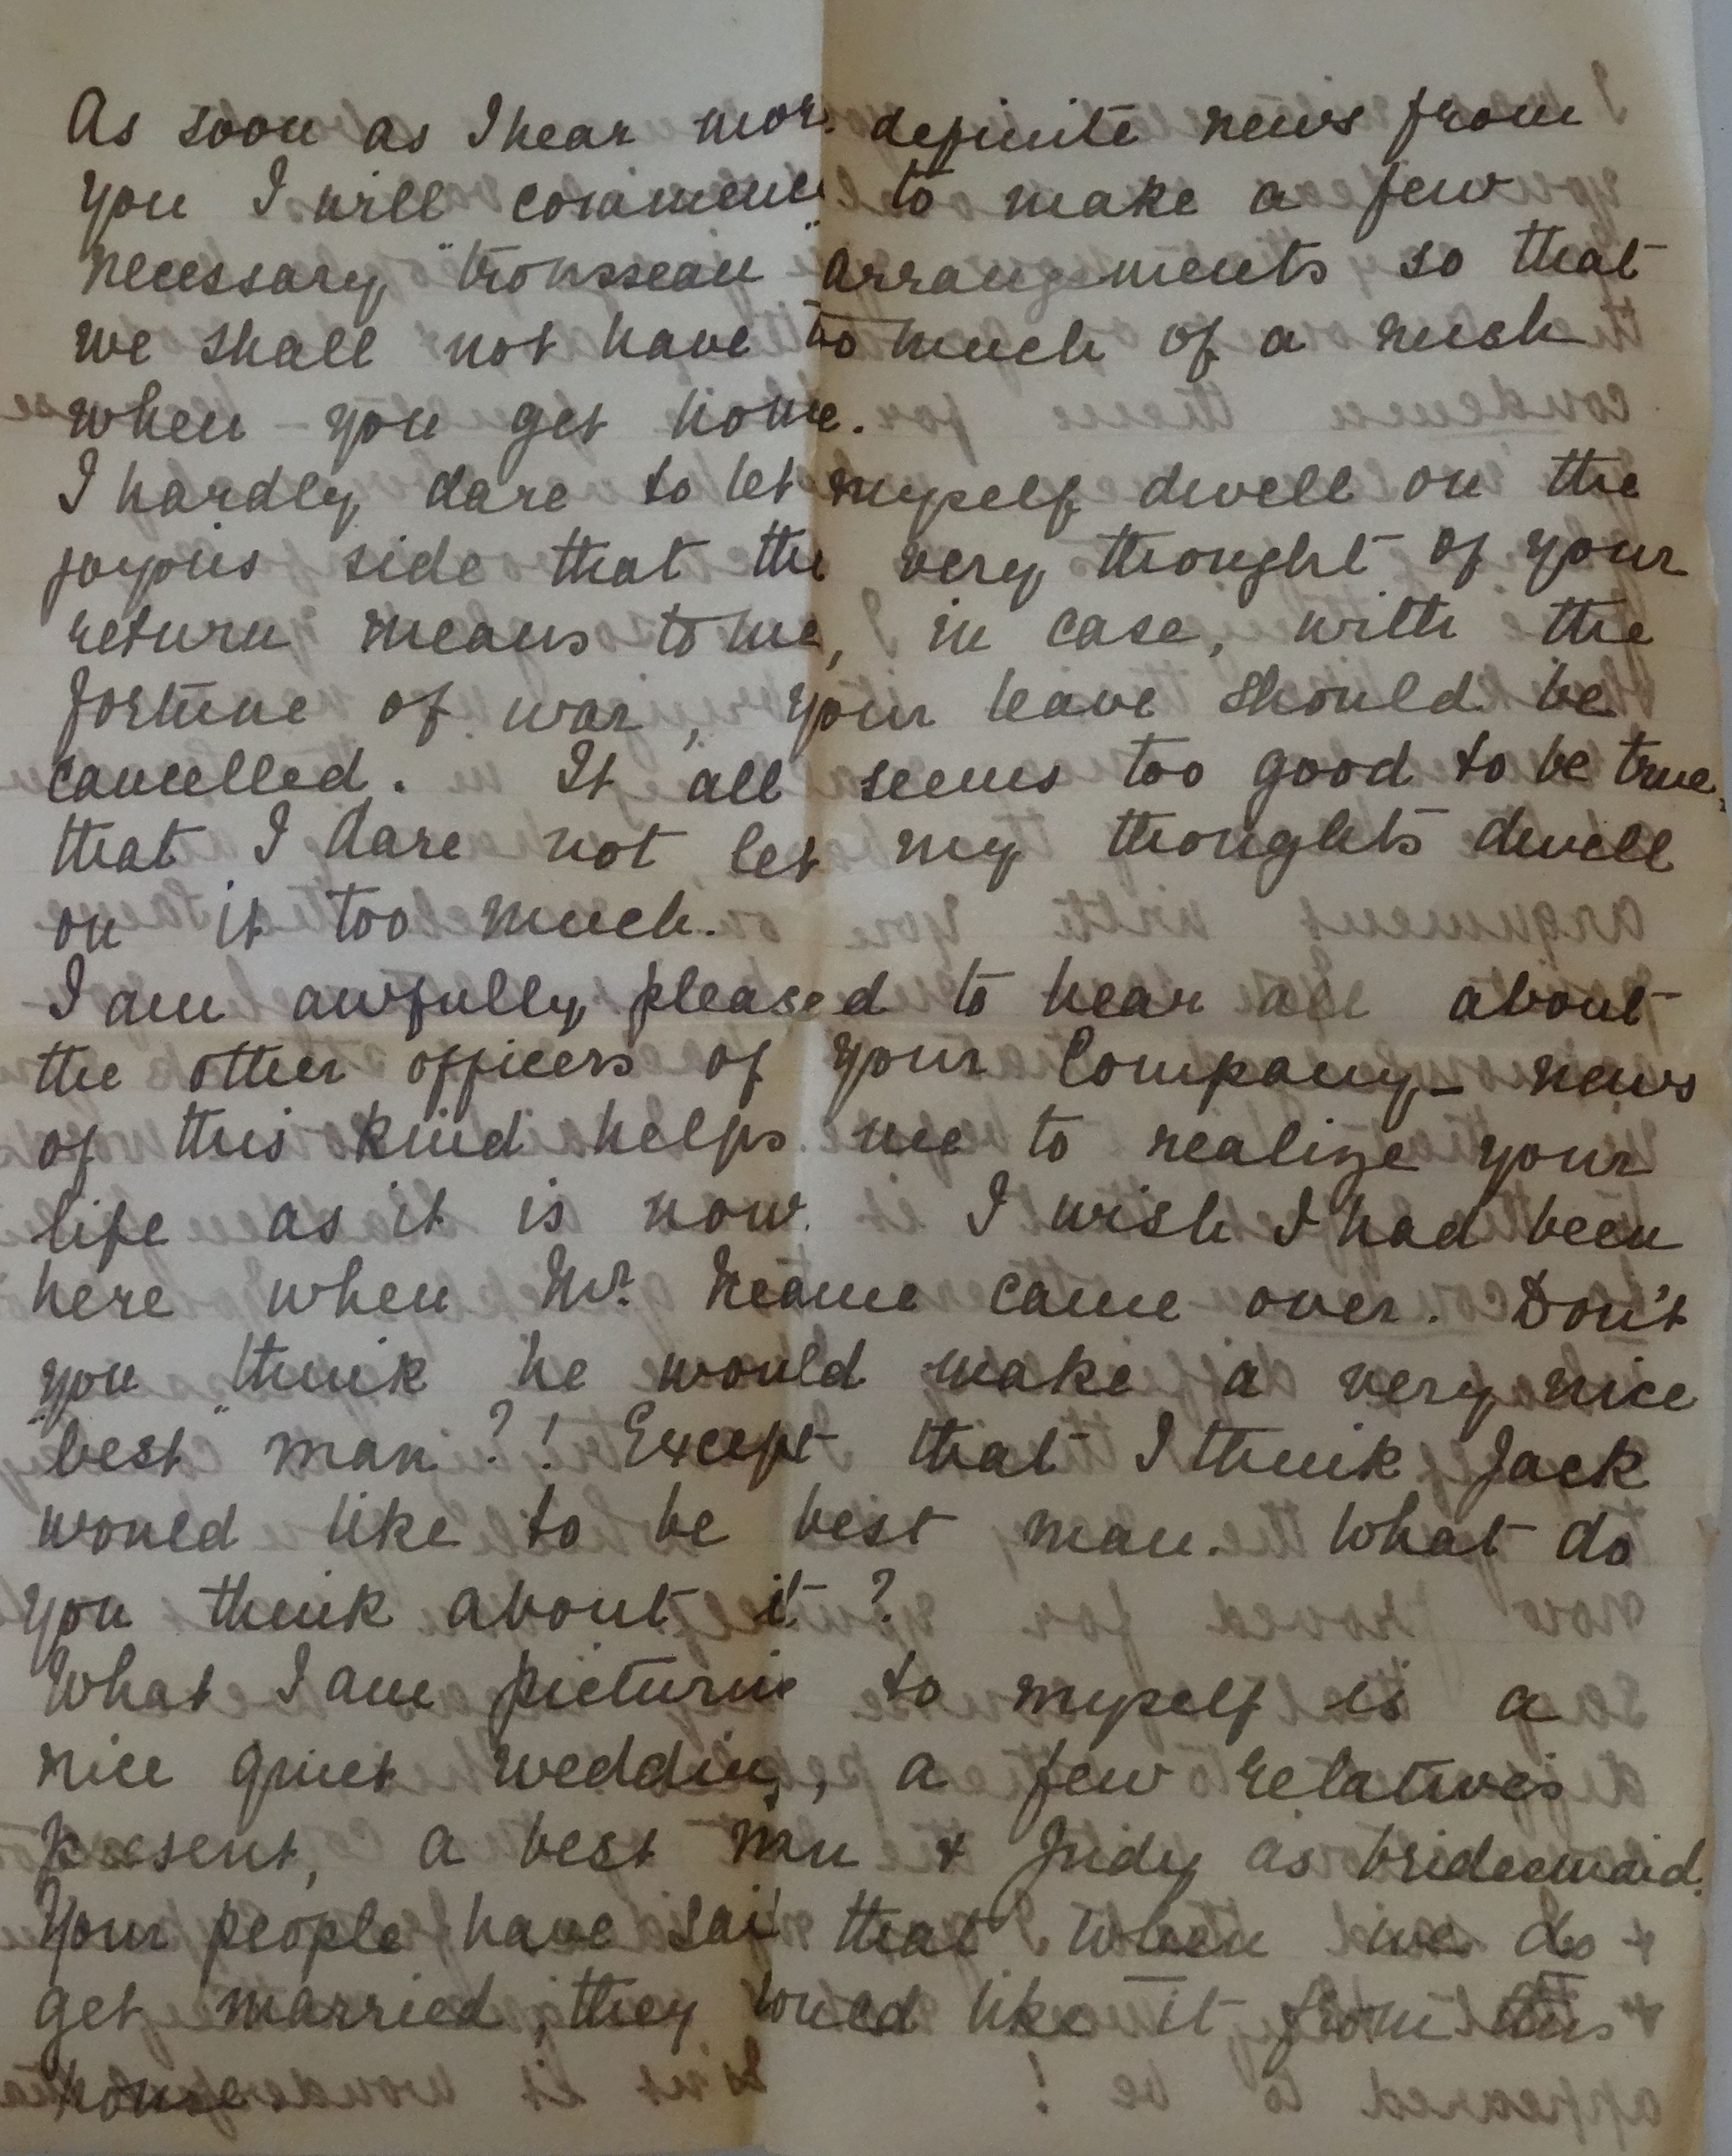 As soon as I hear more definite news from
you I will commence to make a few
necessary "trousseau" arrangements so that
we shall not have to much of a rush
when you get home.
I hardly dare to let myself dwell on the
joyous side that the very thought of your
return means to me, in case, with the
fortune of war, your leave should be
cancelled. It all seems too good to be true,
that I dare not let my thoughts dwell
on it too much.
I am awfully pleased to hear all about
the other officers of your Company - news
of this kind helps me to realize your
life as it is now. I wish I had been
here when Mr. Neame came over. Don't
you think he would make a very nice
"best" man?! Except that I think Jack
would like to be best man. What do
you think about it?
What I am picturing to myself is a
nice quiet wedding, a few relatives
present, a best man & Judy as bridesmaid.
Your people have said that when we do
get married, they would like it from this
house